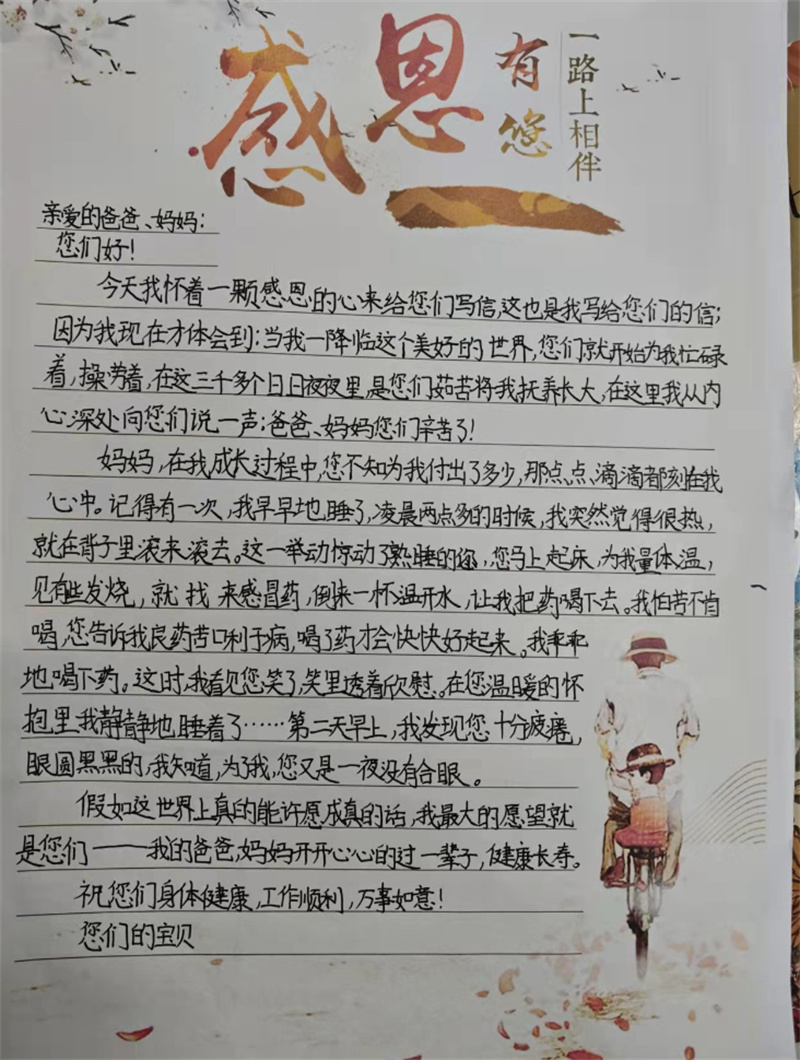 感恩
有您
一路上相伴
亲爱的爸爸、妈妈:
您们好!
今天我怀着一颗感恩的心来给您们写信,这也是我写给您们的信;
因为我现在才体会到:当我一降临这个美好的世界,您们就开始为我忙碌
着,操劳着,在这三千多个日日夜夜里,是您们茹苦将我抚养长大,在这里我从内
心深处向您们说一声:爸爸、妈妈您们辛苦了!
妈妈,在我成长过程中,您不知为我付出了多少,那点、点、滴滴都刻在我
心中。记得有一次,我早早地睡了,凌晨两点多的时候,我突然觉得很热,
就在背子里滚来滚去。这一举动惊动了熟睡的您,您马上起床,为我量体温,
见有些发烧,就找来感冒药,倒来一杯温开水,让我把药喝下去。我怕苦不肯
喝,您告诉我良药苦口利于病,喝了药才会快快好起来。我乖乖
地喝下药。这时,我看见您笑了,笑里透着欣慰。在您温暖的怀
抱里我静静地睡着了……第二天早上,我发现您十分疲倦,
眼圆黑黑的,我知道,为了我,您又是一夜没有合眼。
假如这世界上真的能许愿成真的话,我最大的愿望就
是您们——我的爸爸,妈妈开开心心的过一辈子,健康长寿。
祝您们身体健康,工作顺利,万事如意!
您们的宝贝